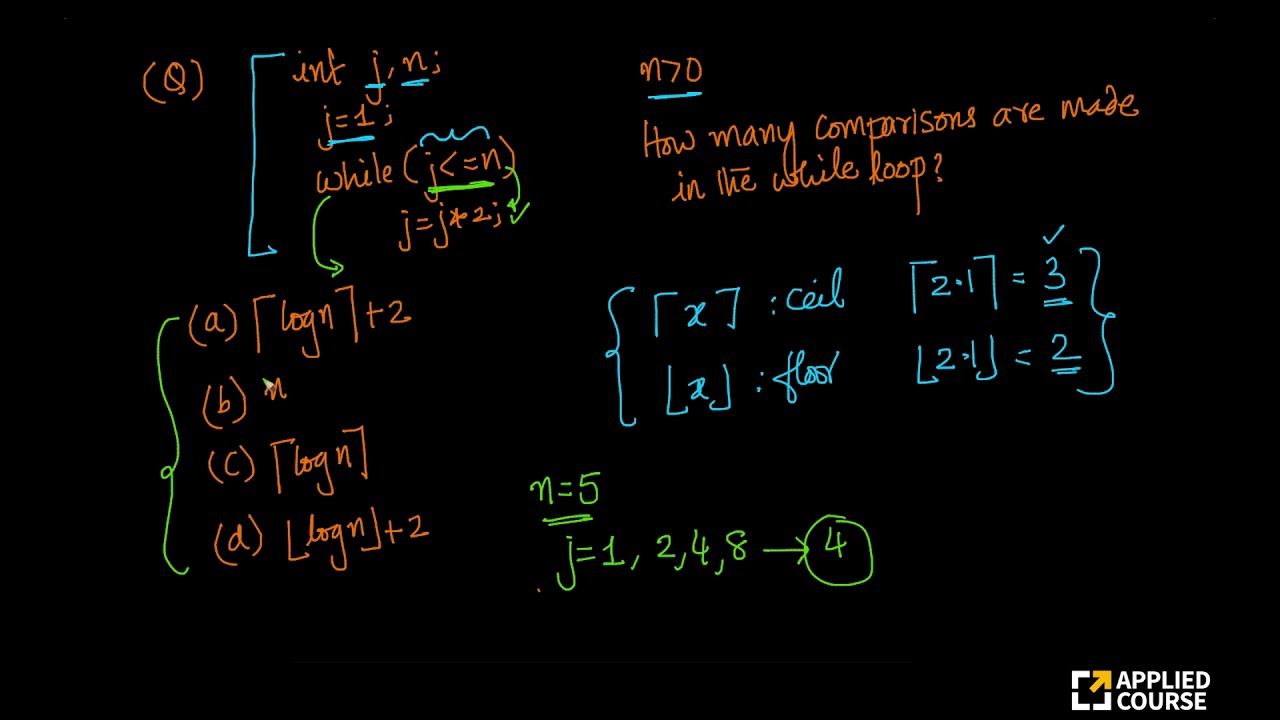 (Q) int j, n;
j=1;
while (j<=n)
j=j*2;
n>0
How many comparisons are made
in the while loop?
(a) ⌈logn⌉+2
(b) n
(c) ⌈logn⌉
(d) ⌊logn⌋+2
⌈x⌉ : ceil ⌈2.1⌉ = 3
⌊x⌋ : floor ⌊2.1⌋ = 2
n=5
j=1, 2,4,8 → 4
APPLIED
COURSE